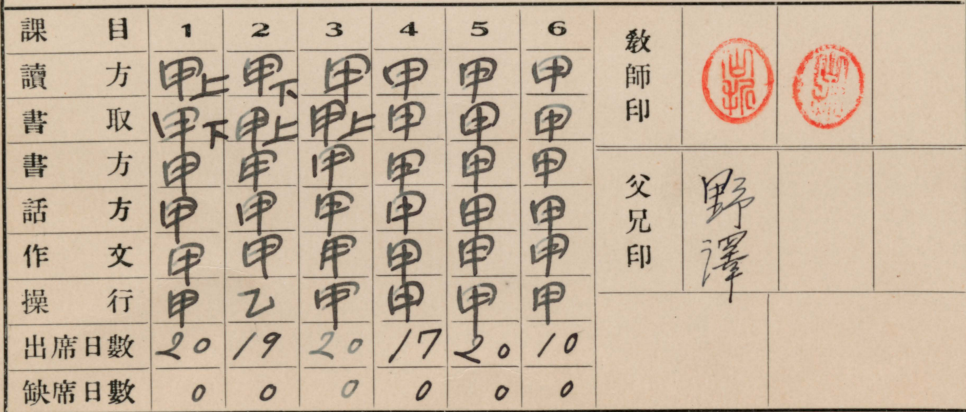 課目 1 2 3 4 5 6
讀方 甲上 甲下 甲 甲 甲 甲
書取 甲下 甲上 甲上 甲 甲 甲
書方 甲 甲 甲 甲 甲 甲
話方 甲 甲 甲 甲 甲 甲
作文 甲 甲 甲 甲 甲 甲
操行 甲 乙 甲 甲 甲 甲
出席日數 20 19 20 17 20 10
缺席日數 0 0 0 0 0 0
敎師印
父兄印 野澤